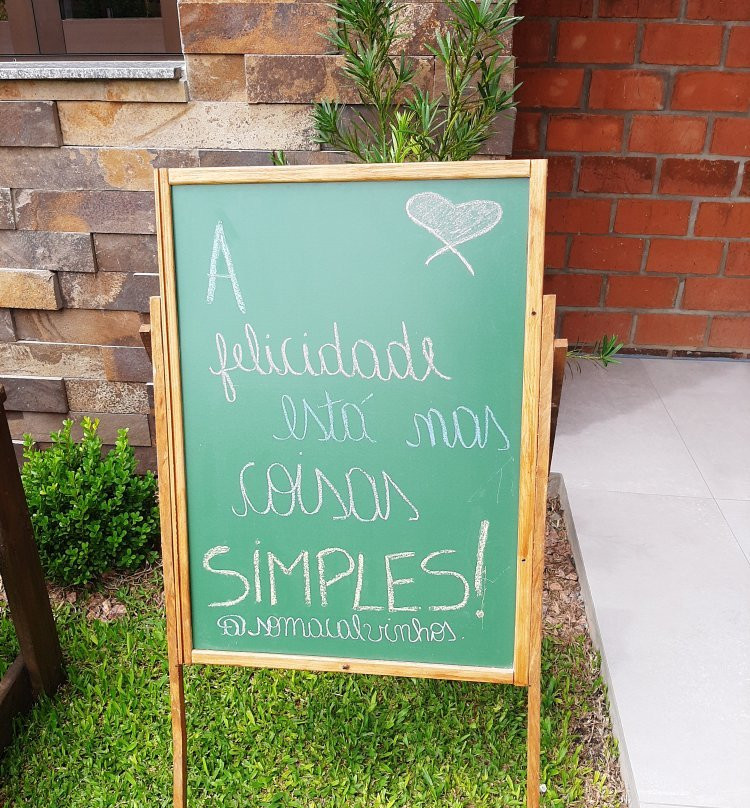 A
felicidade
está nas
coisas
SIMPLES!
@somacalvinhos.